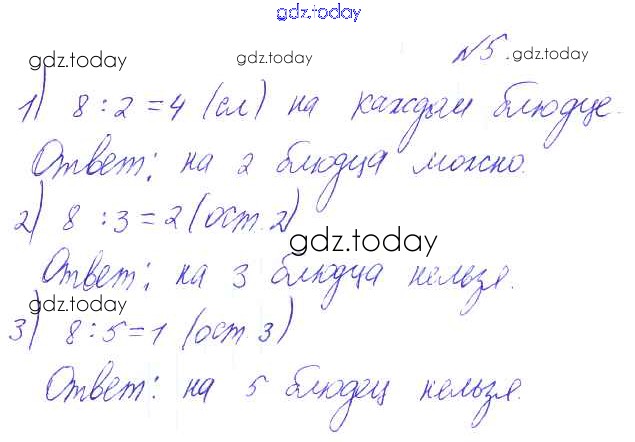 gdz.today
gdz.today gdz.today №5. gdz.today
1) 8 : 2 = 4 (сл) на каждом блюдце.
Ответ: на 2 блюдца можно.
2) 8 : 3 = 2 (ост. 2)
gdz.today
Ответ: на 3 блюдца нельзя.
gdz.today
3) 8 : 5 = 1 (ост 3)
Ответ: на 5 блюдец нельзя.